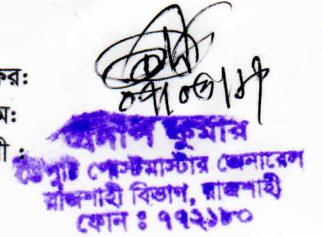 কর:
ম:
বী :
প্রদীপ কুমার
ডেপুটি পোস্টমাস্টার জেনারেল
রাজশাহী বিভাগ, রাজশাহী
ফোন ঃ ৭৭২১৮০